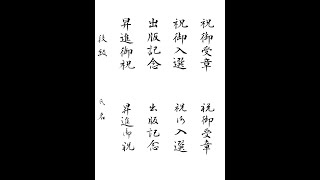 祝御受章
祝御入選
出版記念
昇進御祝
段級
祝御受章
祝御入選
出版記念
昇進御祝
氏名